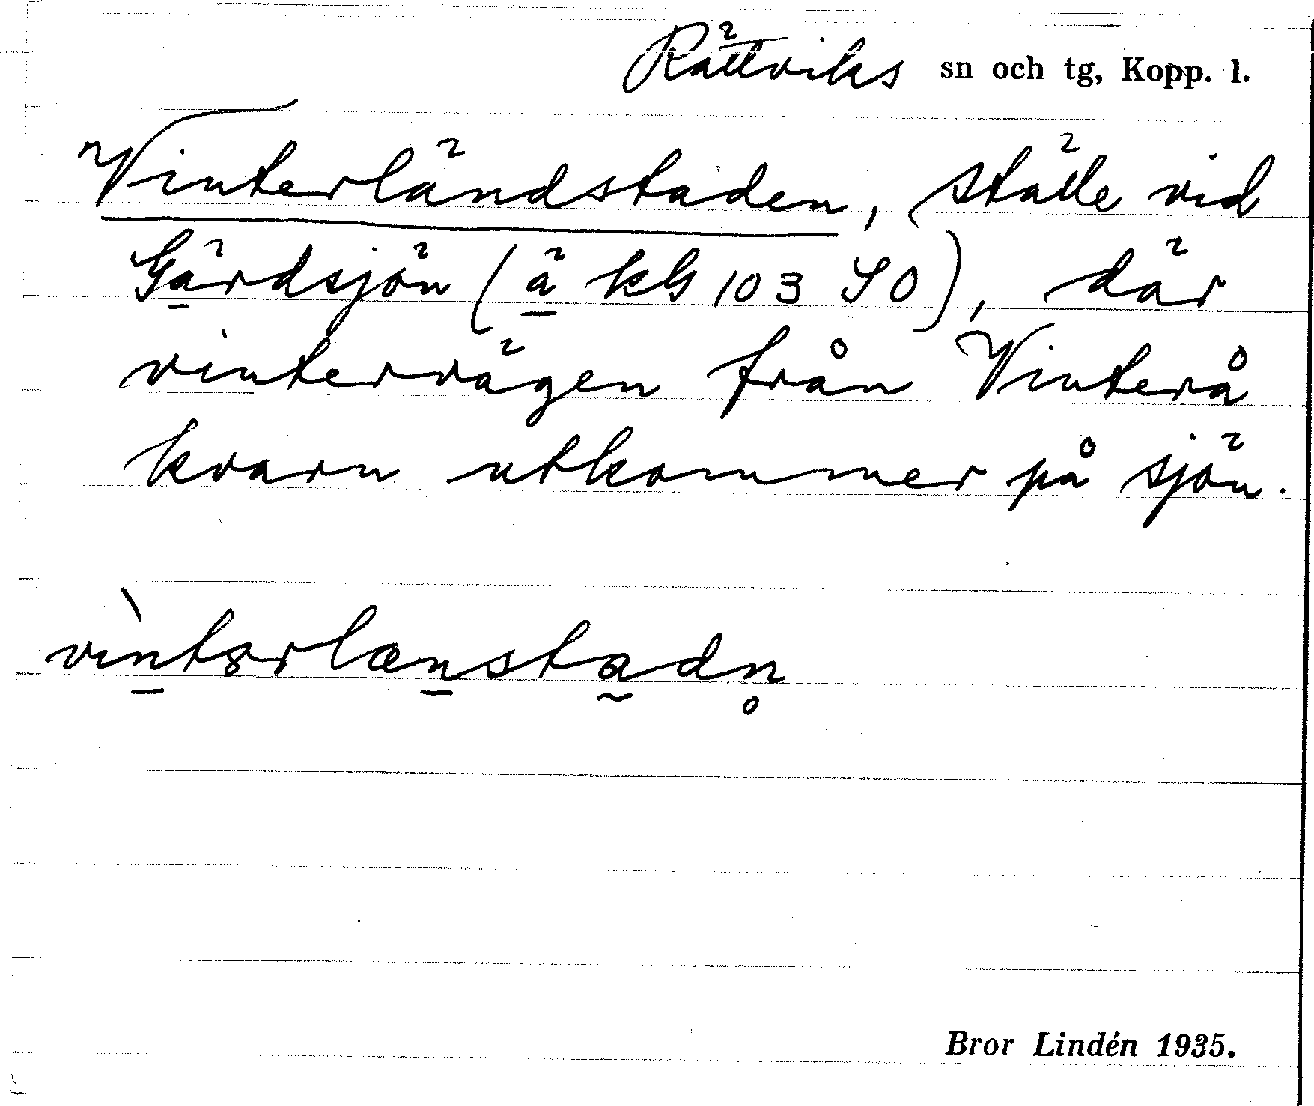 Rättviks sn och tg, Kopp. l.
Vinterländstaden, ställe vid
Gärdsjön (ä kbl 103 SO), där
vintervägen från Vinterå
kvarn utkommer på sjön.
vìntərlænstadn̥
Bror Lindén 1935.